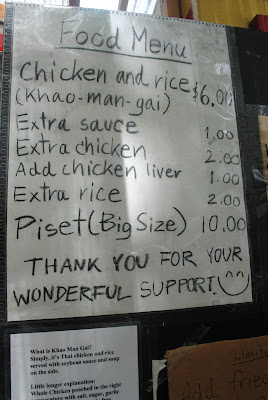 Food Menu
Chicken and rice $6.00
(Khao-man-gai)
Extra sauce 1.00
Extra chicken 2.00
Add chicken liver 1.00
Extra rice 2.00
Piset (Big Size) 10.00
THANK YOU FOR YOUR
WONDERFUL SUPPORT.
What is Khao Man Gai?
Simply, it's Thai chicken and rice
served with soybean sauce and soup
on the side.
Little longer explanation:
Whole Chicken poached in the right
temperature with salt, sugar, garlic
Limited
Add fried